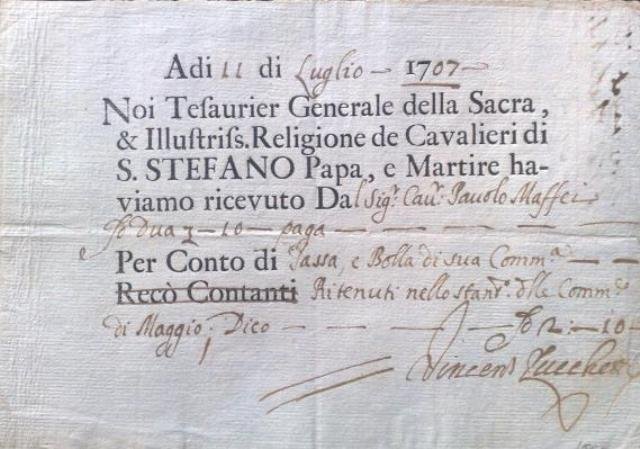 Adi 11 di Luglio — 1707 —
Noi Teſaurier Generale della Sacra,
& Illuſtriſs. Religione de Cavalieri di
S. STEFANO Papa, e Martire ha-
viamo ricevuto Dal Sig.r Cav.r Pavolo Maffei
dua — 10 — paga — — — — — —
Per Conto di Tassa, e Bolla di sua Comm.a — —
Recò Contanti Ritenuti nello stanz.o delle Comm.e
di Maggio. Dico — — — — — 2: — 10